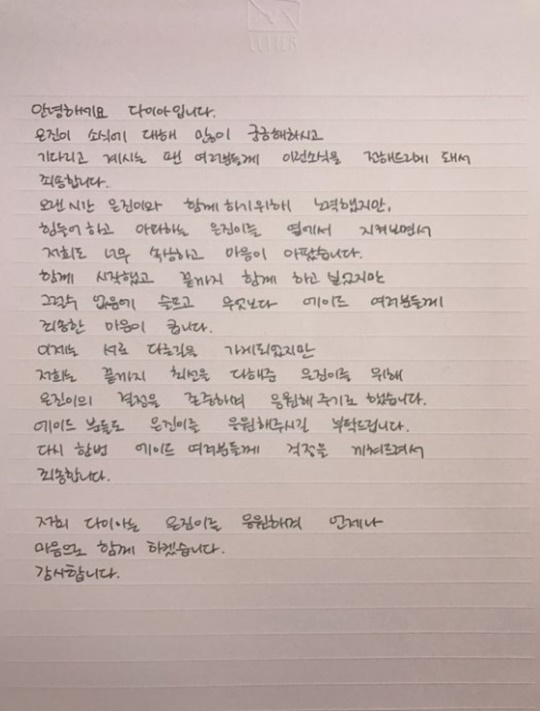 안녕하세요 다이아입니다.
은진이 소식에 대해 많이 궁금해하시고
기다리고 계시는 팬 여러분들께 이런소식을 전해드리게 돼서
죄송합니다.
오랜시간 은진이와 함께하기위해 노력했지만,
힘들어하고 아파하는 은진이를 옆에서 지켜보면서
저희도 너무 속상하고 마음이 아팠습니다.
함께 시작했고 끝까지 함께 하고 싶었지만
그럴수 없음에 슬프고 무엇보다 에이드 여러분들께
죄송한 마음이 큽니다.
이제는 서로 다른길을 가게되었지만
저희는 끝까지 최선을 다해준 은진이를 위해
은진이의 결정을 존중하며 응원해주기로 했습니다.
에이드 분들도 은진이를 응원해주시길 부탁드립니다.
다시 한번 에이드 여러분들께 걱정을 끼쳐드려서
죄송합니다.
저희 다이아는 은진이를 응원하며 언제나
마음으로 함께 하겠습니다.
감사합니다.